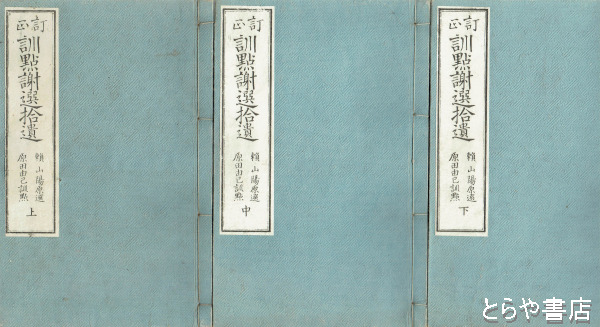 訂正
訓點謝選拾遺
頼山陽原選
原田由己訓點
上
訂正
訓點謝選拾遺
頼山陽原選
原田由己訓點
中
訂正
訓點謝選拾遺
頼山陽原選
原田由己訓點
下
とらや書店